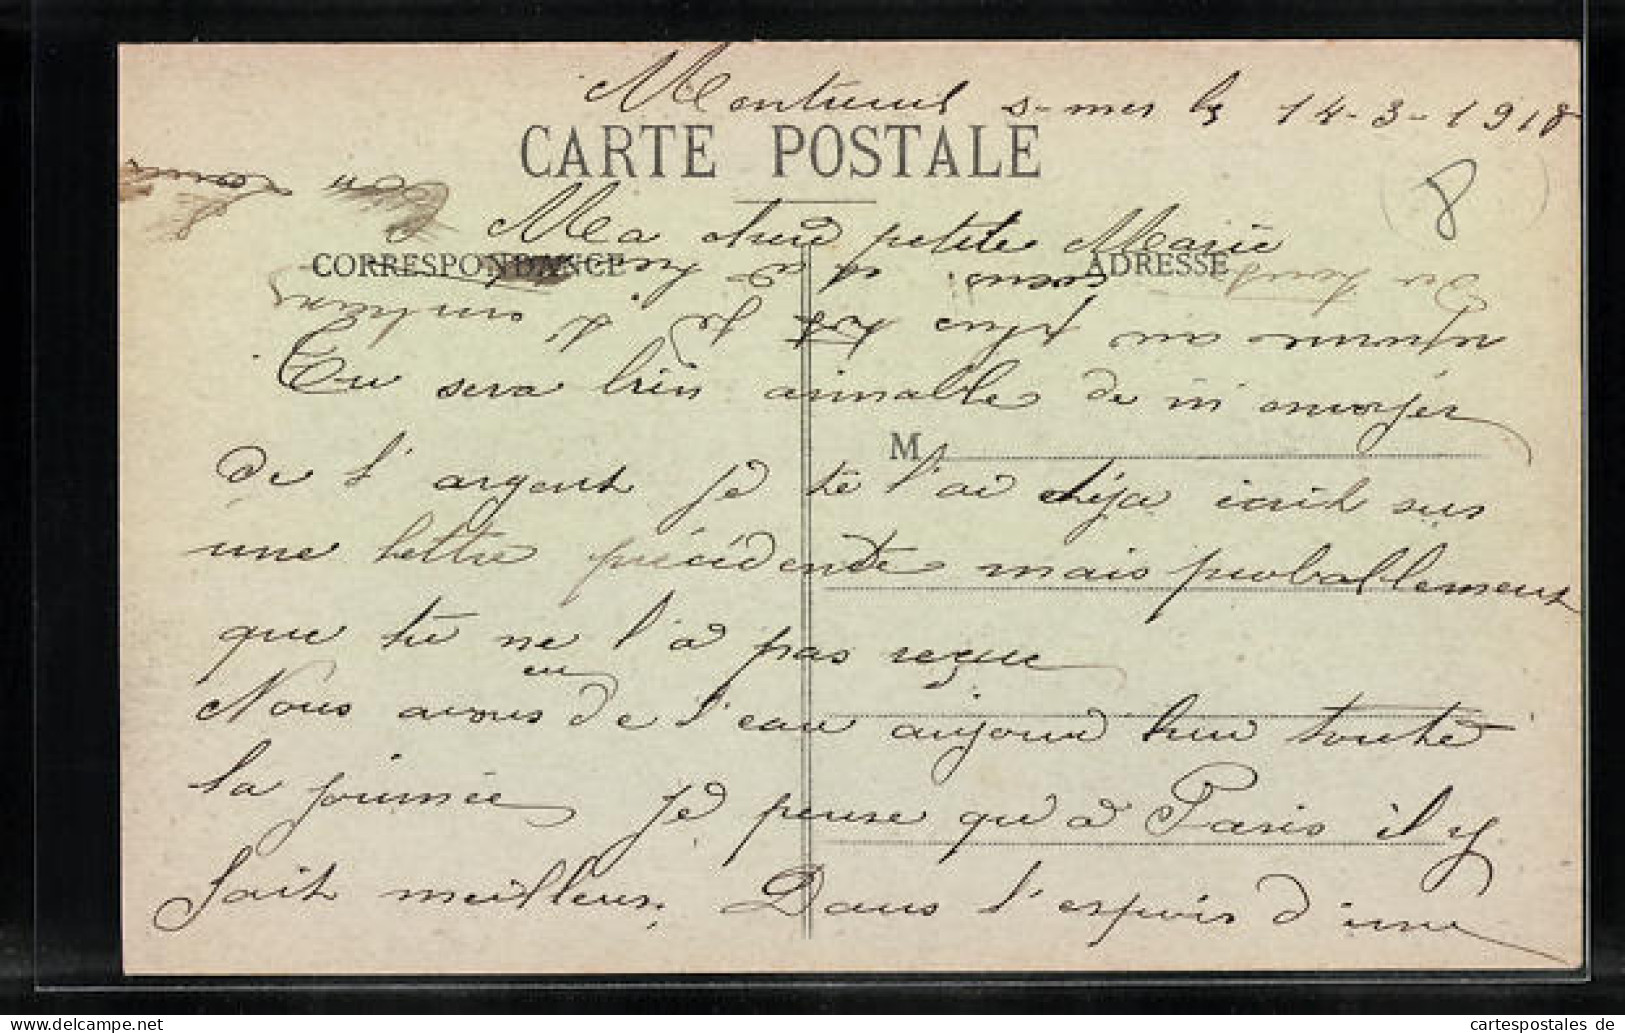 Montreuil s-mer le 14-3-1918
CARTE POSTALE
8
Ma cheré petite Marie
CORRESPONDANCE
ADRESSE
Tu sera bien aimable de m'envoyer
M
de l'argent je te l'ai déja écrit sur
une lettre précédente mais proballement
que tu ne l'a pas reçue
Nous avons eu de l'eau aujourd'hui touté
la journée je pense qu'à Paris il y
fait meilleur. Dans l'espoir d'une
cartespostales de